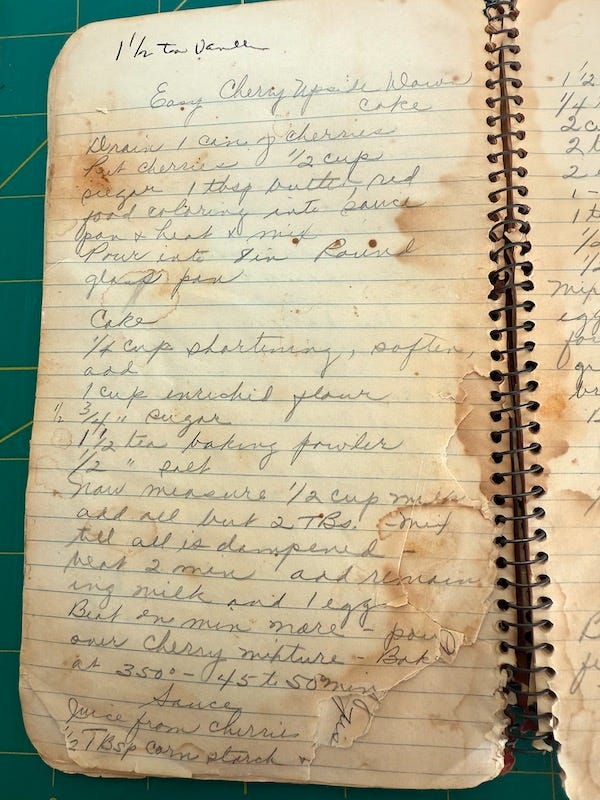 1 1/2 tea Vanilla
Easy Cherry Upside Down
cake
Drain 1 can of cherries
Put cherries 1/2 cup
sugar 1 tbsp butter, red
food coloring into sauce
pan & heat & mix
Pour into 8in Round
glass pan
Cake
1/4 cup shortening, soften,
add
1 cup enriched flour
1/2 3/4 " sugar
1 1/2 tea baking powder
1/2 " salt
Now measure 1/2 cup milk
add all but 2 TBs. - mix
till all is dampened -
beat 2 min add remain
ing milk and 1 egg
Beat on min more - pour
over cherry mixture - Bake
at 350° - 45 to 50 min
Sauce
Juice from cherries
1/2 TBsp corn starch &
1 1/2
1/4
2 c
2
2
1 -
1 t
1/2
1/2
mix
egg
for
gr
br
B